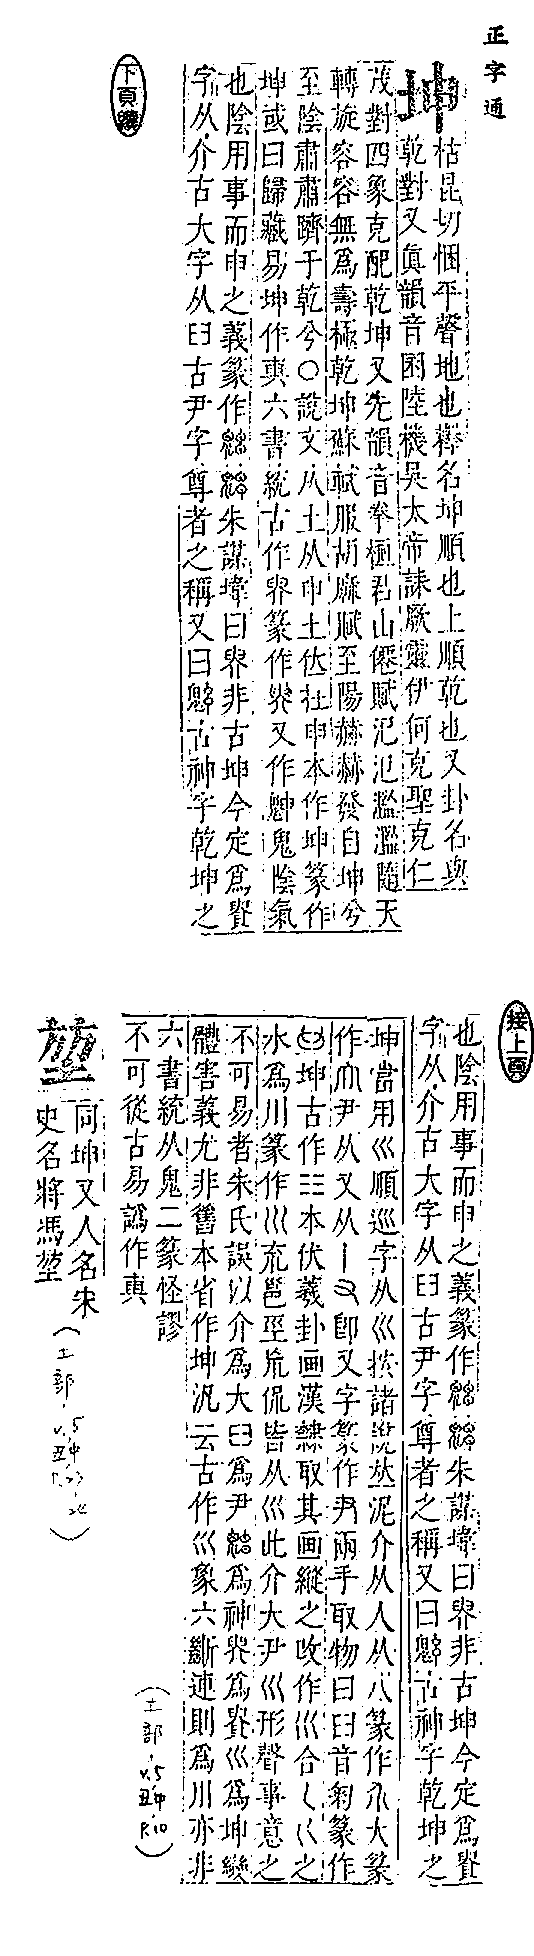 正字通
坤
枯昆切悃平聲地也釋名坤順也上順乾也又卦名與
乾對又眞韻音囷陸機吳太帝誄厥靈伊何克聖克仁
茂對四象克配乾坤又先韻音拳桓君山僊賦氾氾濫濫隨天
轉旋容容無爲壽極乾坤蘇軾服胡麻賦至陽赫赫發自坤兮
至陰肅肅躋于乾兮○說文从土从申土位在申本作坤篆作
坤或曰歸藏易坤作𠀬六書統古作𠀬篆作𠀬又作魋鬼陰氣
也陰用事而申之義篆作 朱謀㙔曰 非古坤今定爲
字从介古大字从𦥑古尹字尊者之稱又曰 古神字乾坤之
下頁續
接上頁
也陰用事而申之義篆作 朱謀㙔曰 非古坤今定爲
字从介古大字从𦥑古尹字尊者之稱又曰 古神字乾坤之
坤當用巛順巡字从巛按諸說𠀤泥介从人从八篆作 大篆
作 尹从又从丨 卽又字篆作 兩手取物曰𦥑音匊篆作
坤古作☷本伏羲卦画漢隸取其画縱之攺作巛合巜巜之
水爲川篆作巛㐬邕坙巟侃皆从巛此介大尹巛形聲事意之
不可易者朱氏誤以介爲大𦥑爲尹 爲神 爲 巛爲坤變
體害義尤非舊本省作坤汎云古作巛象六斷連則爲川亦非
六書統从鬼二篆怪謬
不可從古易譌作𠀬
(土部, v.5 丑中 P.10)
堃
同坤又人名宋
史名將馮堃
(土部, v.5 丑中 P.23-24)